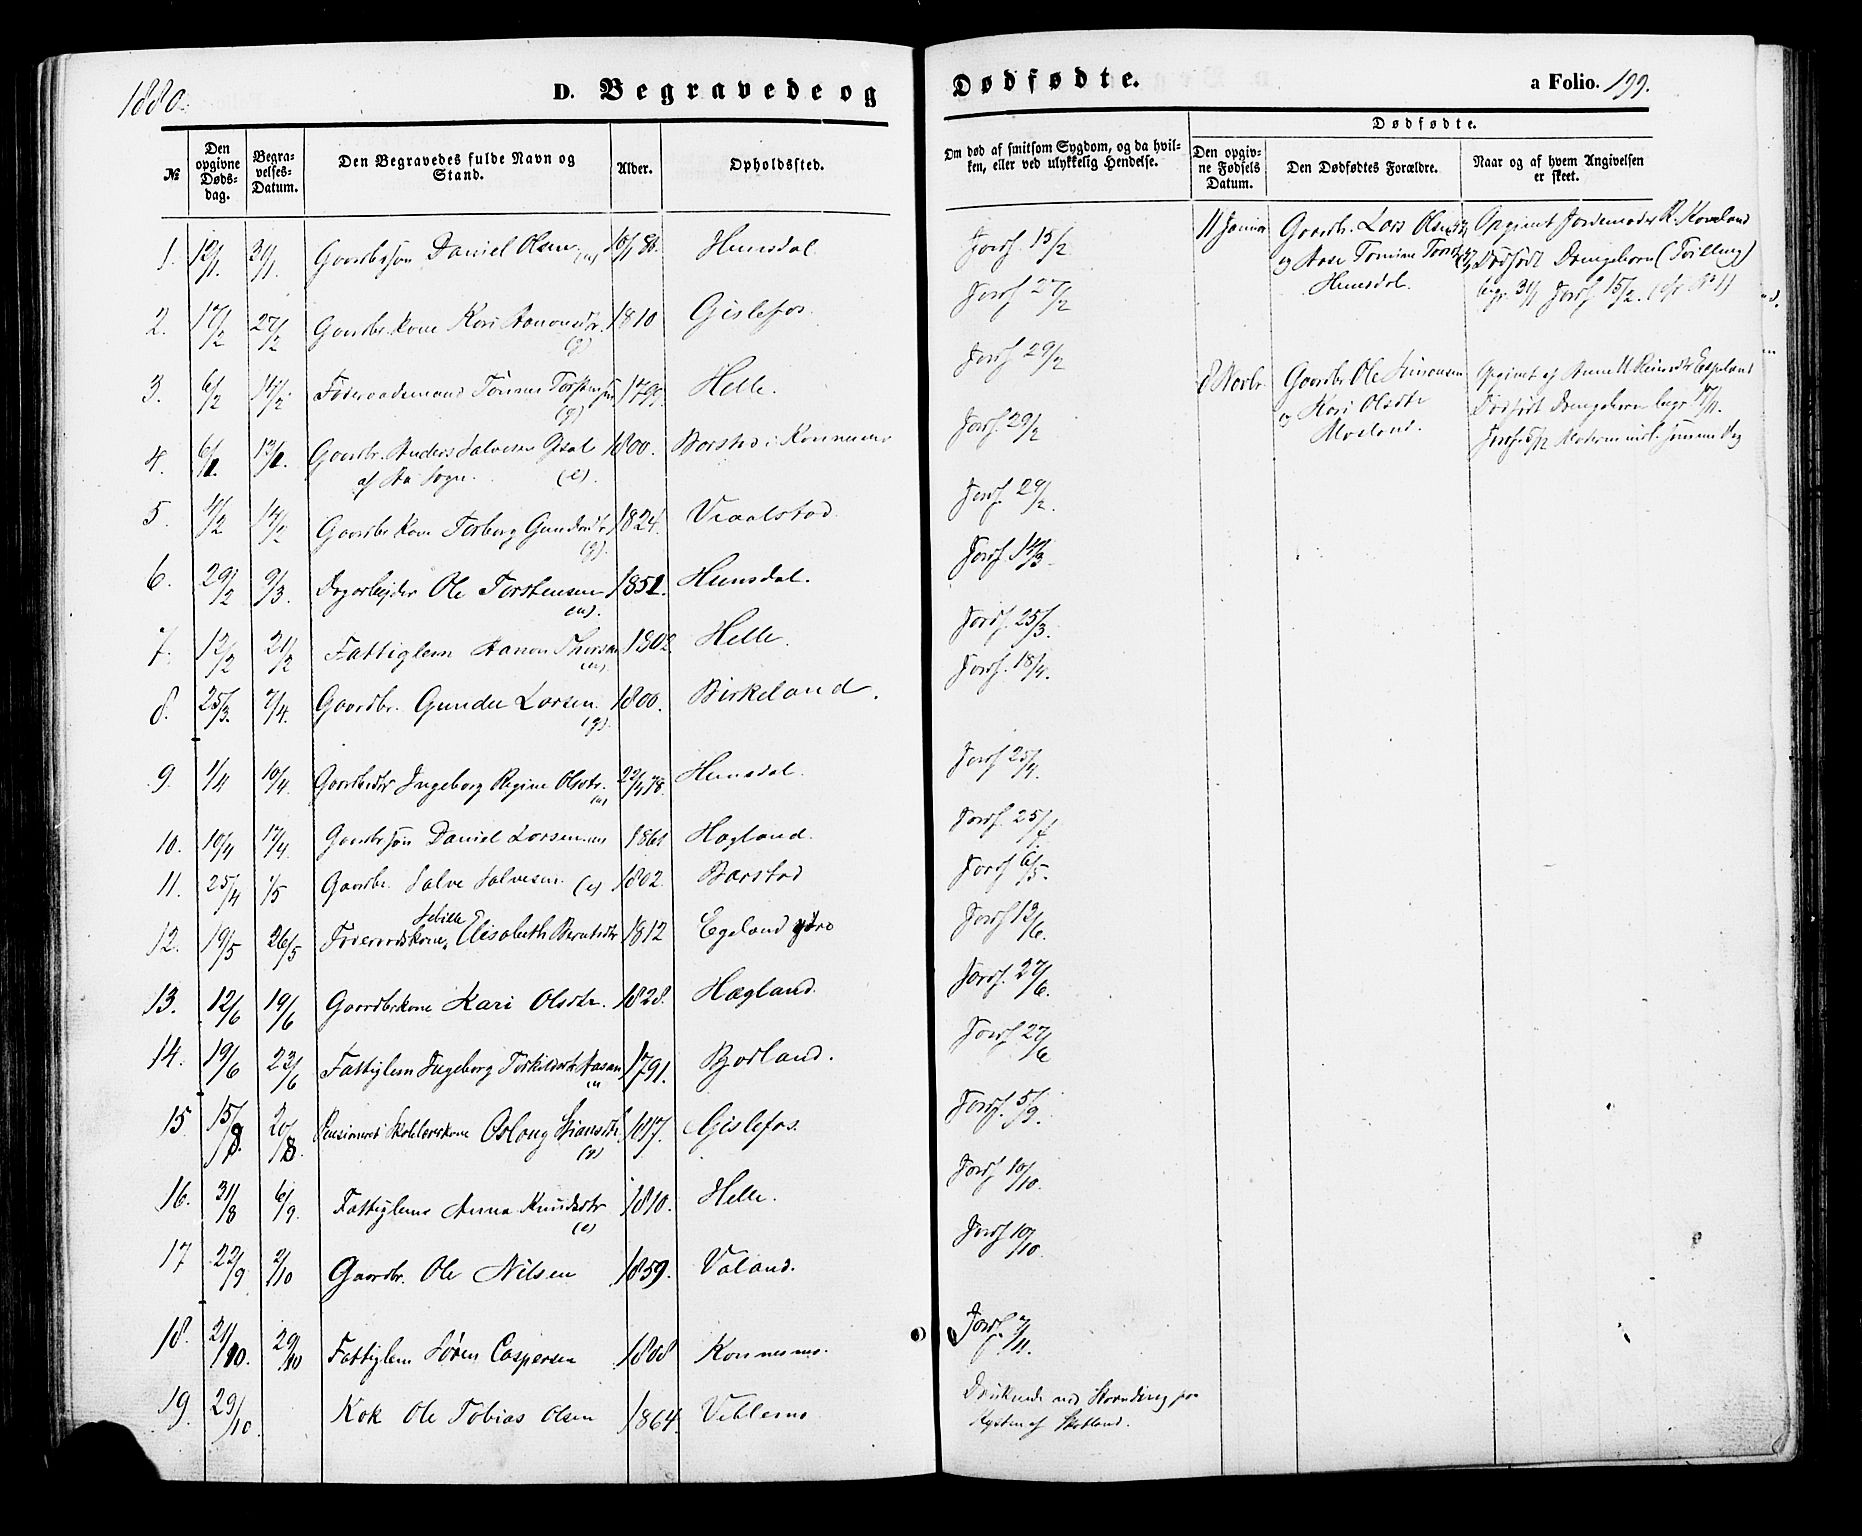 1880.
D. Begravede og Dødfødte.
a Folio. 199.
№
Den opgivne Døds-dag.
Begra-velses-Datum.
Den Begravedes fulde Navn og Stand.
Alder.
Opholdssted.
Om død af smitsom Sygdom, og da hvil-ken, eller ved ulykkelig Hendelse.
Dødfødte.
Den opgiv-ne Fødsels Datum.
Den Dødfødtes Forældre.
Naar og af hvem Angivelsen er skeet.
1. 12/1. 31/1. Gaardbr søn Daniel Olsen (u) 10/1 80. Hunsdal. Jordf 15/2
2. 17/2 27/2 Gaardbr kone Kari Aanonsdtr. (g) 1810 Gislefos. Jordf 27/2
3. 6/2 14/2. Føderaadsmand Tønnes Torstensen (g) 1799. Helle. Jordf 29/2
4. 13/2. Gaardbr. Anders Salvesen 1800. Barstad i Konnesmo Jordf 29/2
af Aa Sogn. (e)
5. 4/2 14/2 Gaardbr kone Torborg Gundersdtr (g). 1824. Vraalstad. Jordf 29/2.
6. 29/2 9/3. Dagarbeider Ole Torstensen (u). 1851. Hunsdal. Jordf 14/3.
7. 12/2 21/2 Fattiglem Aanon (u) 1802 Helle. Jordf. 25/3.
8. 25/3. 7/4. Gaardbr. Gunder Larsen. (g). 1800. Birkeland. Jordf. 18/4.
9. 1/4 10/4. Gaardbrdtr Ingeborg Regine Olsdtr. (u) 22/4 78. Hunsdal. Jordf 25/4.
10. 10/4 17/4. Gaardbr søn Daniel Larsen (u) 1861 Hagland. Jordf. 25/4.
11. 25/4 1/5 Gaardbr. Salve Salvesen. (e) 1802. Barstad Jordf 6/5.
12. 19/5 26/5 Føderaadskone Sibille Elisabeth Berntsdtr 1812 Egeland ydre Jordf 13/6.
13. 12/6 19/6 Gaardbrkone Kari Olsdtr. 1828. Hægland. Jordf. 27/6.
14. 19/6 23/6 Fattiglem Ingeborg Torkildsdtr Aasan (u) 1791. Bjorland. Jordf. 27/6
15 15/8. 20/8. Pensioneret Skolelærerkone Oslaug (g) 1817. Gislefos. Jordf. 5/9.
16. 31/8 6/9. Fattiglem Anna Knudsdtr (e) 1810. Helle. Jordf 10/10.
17 22/9 2/10 Gaardbr. Ole Nilsen 1859. Valand. Jordf 10/10.
18. 21/10. 29/10 Fattiglem Søren Caspersen 1808 Konnesmo. Jordf. 7/11.
19. 29/10. Kok Ole Tobias Olsen 1864. Vehlemo Druknede ved Stranding paa
Kysten af Skotland.
11 Januar Gaardbr. Lars Olsen Opgivet Jordemoder K. Koveland
og Aase Tomine Dødfødt Drengebarn (Tvilling)
Hunsdal. begr. 31/1 Jordf 15/2. (cfr. № 1)
8 Novbr Gaardbr Ole Simonsen Opgivet af Anne Espeland
og Kari Olsdtr Dødfødt Drengebarn begr.
Mosland. samme Dag